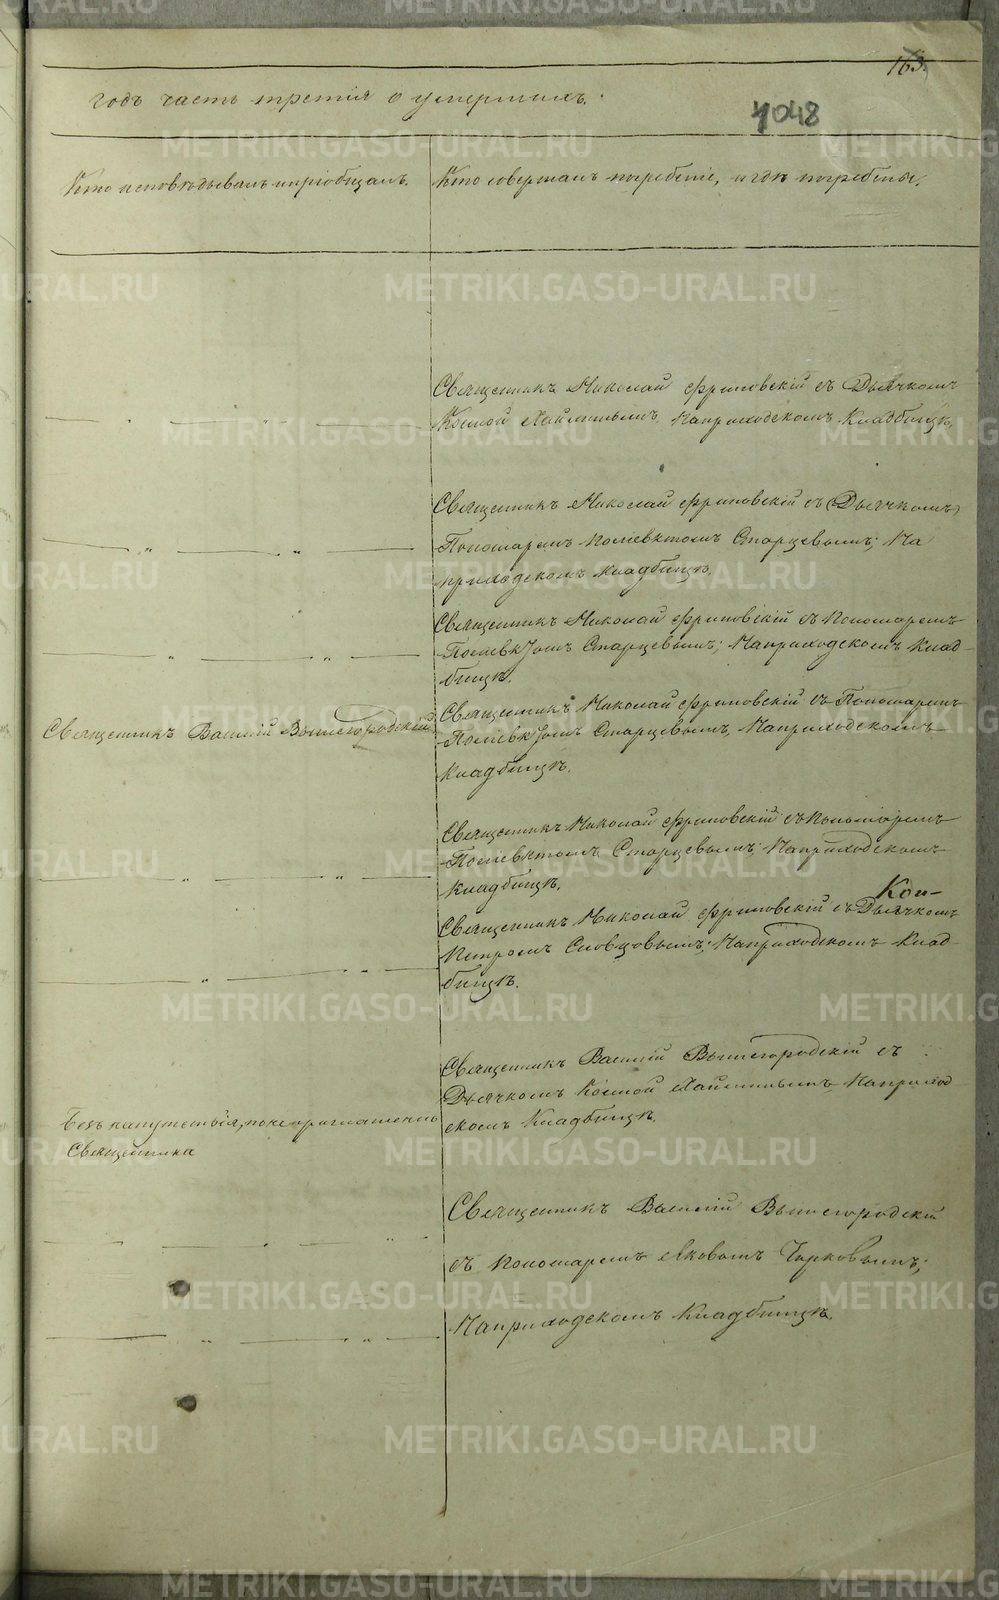 163.
годъ часть третія о умершихъ.
1048
Кто исповѣдывалъ и пріобщалъ.
Кто совершалъ погребеніе, и гдѣ погребены.
Священникъ Николай Фриновскій съ Дьячкомъ
Космой Хайминымъ, На приходскомъ Кладбищѣ.
Священникъ Николай Фриновскій съ (Дьячкомъ)
Пономаремъ Полиевктомъ Старцевымъ; На
приходскомъ кладбищѣ.
Священникъ Николай Фриновскій съ пономаремъ
Полиевктомъ Старцевымъ; На приходскомъ Клад-
бищѣ.
Священникъ Василій Вышегородскій
Священникъ Николай Фриновскій съ Пономаремъ
Полиевктомъ Старцевымъ, На приходскомъ
Кладбищѣ.
Священникъ Николай Фриновскій съ пономаремъ
Полиевктомъ Старцевымъ; На приходскомъ
Кладбищѣ.
Священникъ Николай Фриновскій съ Дьячкомъ
Петромъ Словцовымъ; На приходскомъ Клад-
бищѣ.
Священникъ Василій Вышегородскій съ
Дьячкомъ Космой Хайминымъ На приход
скомъ Кладбищѣ.
Безъ напутствія, по не приглашенію
Священника
Священникъ Василій Вышегородскій
съ пономаремъ Яковомъ Чирковымъ;
На приходскомъ Кладбищѣ.
METRIKI.GASO-URAL.RU